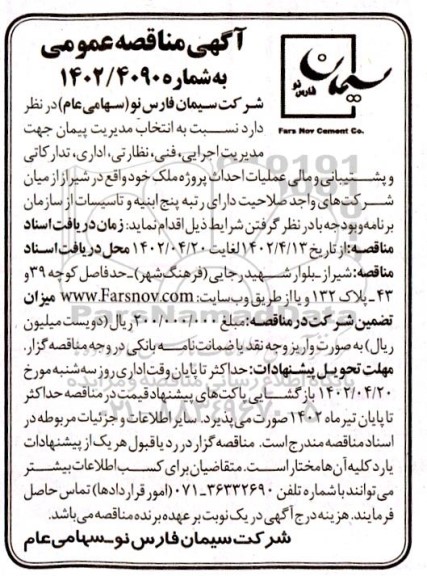 آگهی مناقصه عمومی
به شماره ۱۴۰۲/۴۰۹۰
سیمان فارس نو
Fars Nov Cement Co.
شرکت سیمان فارس نو (سهامی عام) در نظر
دارد نسبت به انتخاب مدیریت پیمان جهت
مدیریت اجرایی، فنی، نظارتی، اداری، تدارکاتی
و پشتیبانی و مالی عملیات احداث پروژه ملک خود واقع در شیراز از میان
شرکت‌های واجد صلاحیت دارای رتبه پنج ابنیه و تاسیسات از سازمان
برنامه و بودجه با در نظر گرفتن شرایط ذیل اقدام نماید: زمان دریافت اسناد
مناقصه: از تاریخ ۱۴۰۲/۴/۱۳ لغایت ۱۴۰۲/۰۴/۲۰ محل دریافت اسناد
مناقصه: شیراز_بلوار شهید رجایی (فرهنگ شهر)_حدفاصل کوچه ۳۹ و
۴۳_پلاک ۱۳۲ و یا از طریق وب سایت: www.Farsnov.com میزان
تضمین شرکت در مناقصه: مبلغ ۲۰۰/۰۰۰/۰۰۰ ریال (دویست میلیون
ریال) به صورت واریز وجه نقد یا ضمانت‌نامه بانکی در وجه مناقصه گزار.
مهلت تحویل پیشنهادات: حداکثر تا پایان وقت اداری روز سه شنبه مورخ
۱۴۰۲/۰۴/۲۰ بازگشایی پاکت‌های پیشنهاد قیمت در مناقصه حداکثر
تا پایان تیر ماه ۱۴۰۲ صورت می‌پذیرد. سایر اطلاعات و جزئیات مربوطه در
اسناد مناقصه مندرج است. مناقصه گزار در رد یا قبول هر یک از پیشنهادات
یا رد کلیه آن‌ها مختار است. متقاضیان برای کسب اطلاعات بیشتر
می‌توانند با شماره تلفن ۳۶۳۳۲۶۹۰_۰۷۱ (امور قراردادها) تماس حاصل
فرمایند. هزینه درج آگهی در یک نوبت بر عهده برنده مناقصه می‌باشد.
شرکت سیمان فارس نو_سهامی عام